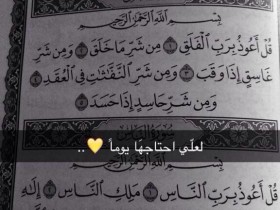 بِسْمِ اللَّهِ الرَّحْمَٰنِ الرَّحِيمِ
قُلْ أَعُوذُ بِرَبِّ الْفَلَقِ ١ مِن شَرِّ مَا خَلَقَ ٢ وَمِن شَرِّ
غَاسِقٍ إِذَا وَقَبَ ٣ وَمِن شَرِّ النَّفَّاثَاتِ فِي الْعُقَدِ ٤
وَمِن شَرِّ حَاسِدٍ إِذَا حَسَدَ ٥
لعلّي احتاجهَا يوماً 💛 ..
بِسْمِ اللَّهِ الرَّحْمَٰنِ الرَّحِيمِ
قُلْ أَعُوذُ بِرَبِّ النَّاسِ ١ مَلِكِ النَّاسِ ٢ إِلَٰهِ